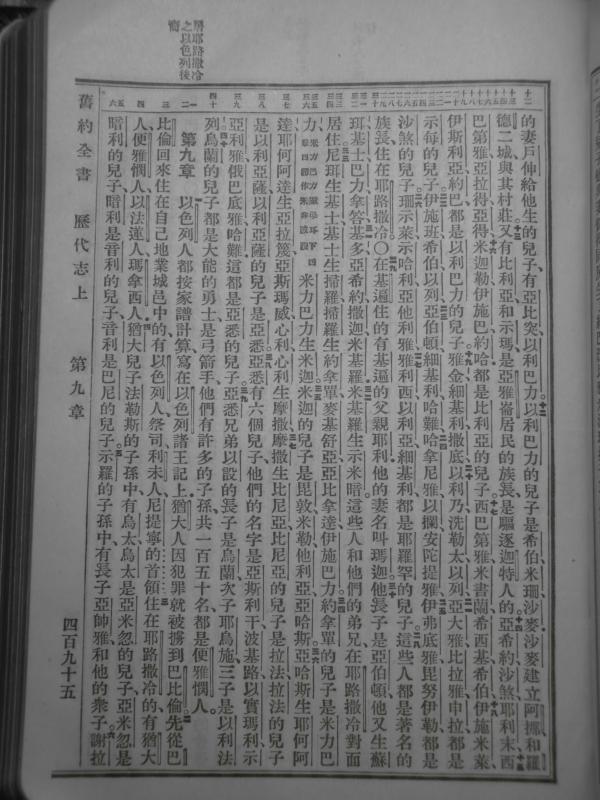 屬耶路撒冷
之以色列後
裔
的妻戶伸給他生的兒子有亞比突以利巴力以利巴力的兒子是希伯米珊沙麥沙麥建立阿挪和羅
德二城與其村莊又有比利亞和示瑪是亞雅崙居民的族長是驅逐迦特人的亞希約沙煞耶利末西
巴第雅亞拉得亞得米迦勒伊施巴約哈都是比利亞的兒子西巴第雅米書蘭希西基希伯伊施米萊
伊斯利亞約巴都是以利巴力的兒子雅金細基利撒底以利乃洗勒太以列亞大雅比拉雅申拉都是
示每的兒子伊施班希伯以列亞伯頓細基利哈難哈拿尼雅以攔安陀提雅伊弗底雅毘努伊勒都是
沙煞的兒子珊示萊示哈利亞他利雅雅利西以利亞細基利都是耶羅罕的兒子這些人都是著名的
族長住在耶路撒冷〇在基遍住的有基遍的父親耶利他的妻名叫瑪迦他長子是亞伯頓他又生蘇
珥基士巴力拿答基多亞希約撒迦米基羅米基羅生示米暗這些人和他們的弟兄在耶路撒冷對面
居住尼珥生基士基士生掃羅掃羅生約拿單麥基舒亞亞比拿達伊施巴力約拿單的兒子是米力巴
力米力巴力生米迦米迦的兒子是毘敦米勒他利亞亞哈斯亞哈斯生耶何阿
達耶何阿達生亞拉篾亞斯瑪威心利心利生摩撒摩撒生比尼亞比尼亞的兒子是拉法拉法的兒子
是以利亞薩以利亞薩的兒子是亞悉亞悉有六個兒子他們的名字是亞斯利干波基路以實瑪利示
亞利雅俄巴底雅哈難這都是亞悉的兒子亞悉兄弟以設的長子是烏蘭次子耶烏施三子是以利法
列烏蘭的兒子都是大能的勇士是弓箭手他們有許多的子孫共一百五十名都是便雅憫人
第九章 以色列人都按家譜計算寫在以色列諸王記上猶大人因犯罪就被擄到巴比倫先從巴
比倫回來住在自己地業城邑中的有以色列人祭司利未人尼提寧的首領住在耶路撒冷的有猶大
人便雅憫人以法蓮人瑪拿西人猶大兒子法勒斯的子孫中有烏太烏太是亞米忽的兒子亞米忽是
暗利的兒子暗利是音利的兒子音利是巴尼的兒子示羅的子孫中有長子亞帥雅和他的衆子謝拉
舊約全書 歷代志上 第九章 四百九十五